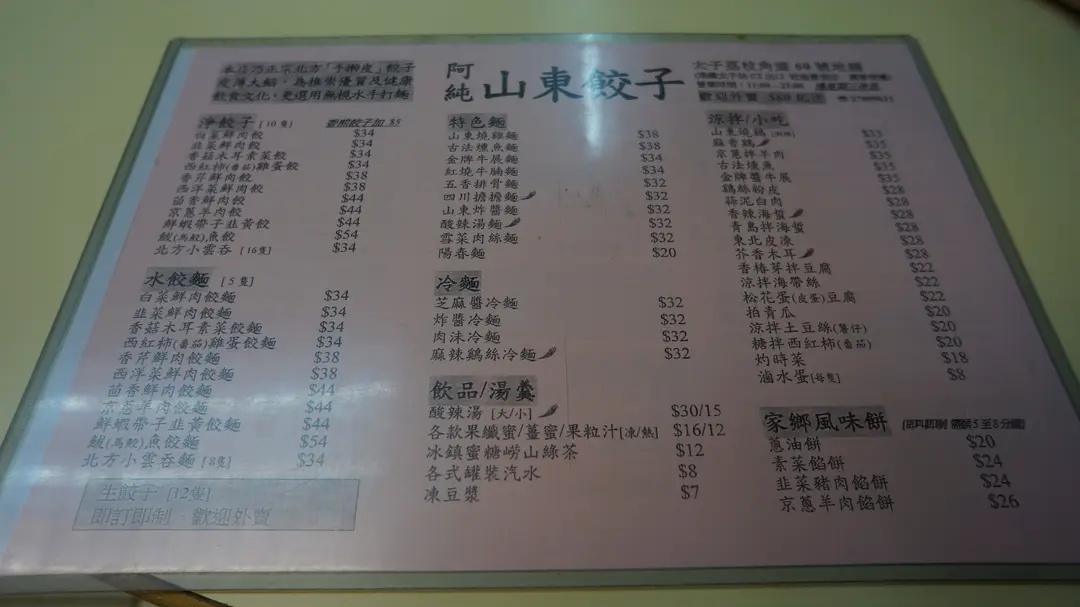 本店乃正宗北方「手擀皮」餃子
皮薄大餡，為推崇優質及健康
飲食文化，更選用無梘水手打麵
阿純 山東餃子
太子荔枝角道 60 號地鋪
營業時間：11:00 - 23:00
歡迎外賣 $60 起送
淨餃子 [10 隻] 香煎餃子加 $5
白菜鮮肉餃 $34
韭菜鮮肉餃 $34
香菇木耳素菜餃 $34
西紅柿(番茄)雞蛋餃 $34
香芹鮮肉餃 $38
西洋菜鮮肉餃 $38
茴香鮮肉餃 $44
京蔥羊肉餃 $44
鮮蝦帶子韭黃餃 $44
鮁(馬鮫)魚餃 $54
北方小雲吞 [16隻] $34
水餃麵 [5 隻]
白菜鮮肉餃麵 $34
韭菜鮮肉餃麵 $34
香菇木耳素菜餃麵 $34
西紅柿(番茄)雞蛋餃麵 $34
香芹鮮肉餃麵 $38
西洋菜鮮肉餃麵 $38
茴香鮮肉餃麵 $44
京蔥羊肉餃麵 $44
鮮蝦帶子韭黃餃麵 $44
鮁(馬鮫)魚餃麵 $54
北方小雲吞麵 [8隻] $34
生餃子 [12隻]
即訂即制、歡迎外賣
特色麵
山東燒雞麵 $38
古法燻魚麵 $38
金牌牛展麵 $34
紅燒牛腩麵 $34
五香排骨麵 $32
四川擔擔麵 $32
山東炸醬麵 $32
酸辣湯麵 $32
雪菜肉絲麵 $32
陽春麵 $20
冷麵
芝麻醬冷麵 $32
炸醬冷麵 $32
肉沫冷麵 $32
麻辣鷄絲冷麵 $32
飲品/湯羹
酸辣湯 [大/小] $30/15
各款果纖蜜/薑蜜/果粒汁[凍/熱] $16/12
冰鎮蜜糖嶗山綠茶 $12
各式罐裝汽水 $8
凍豆漿 $7
涼拌/小吃
山東燒鷄 $35
麻香鷄 $35
京蔥拌羊肉 $35
古法燻魚 $35
金牌醬牛展 $35
鷄絲粉皮 $28
蒜泥白肉 $28
香辣海蜇 $28
青島拌海蜇 $28
東北皮凍 $28
芥香木耳 $28
香椿芽拌豆腐 $22
涼拌海帶絲 $22
松花蛋(皮蛋)豆腐 $22
拍青瓜 $20
涼拌土豆絲(薯仔) $20
糖拌西紅柿(番茄) $20
灼時菜 $18
滷水蛋[每隻] $8
家鄉風味餅 (即叫即制 需候5至8分鐘)
蔥油餅 $20
素菜餡餅 $24
韭菜豬肉餡餅 $24
京蔥羊肉餡餅 $26